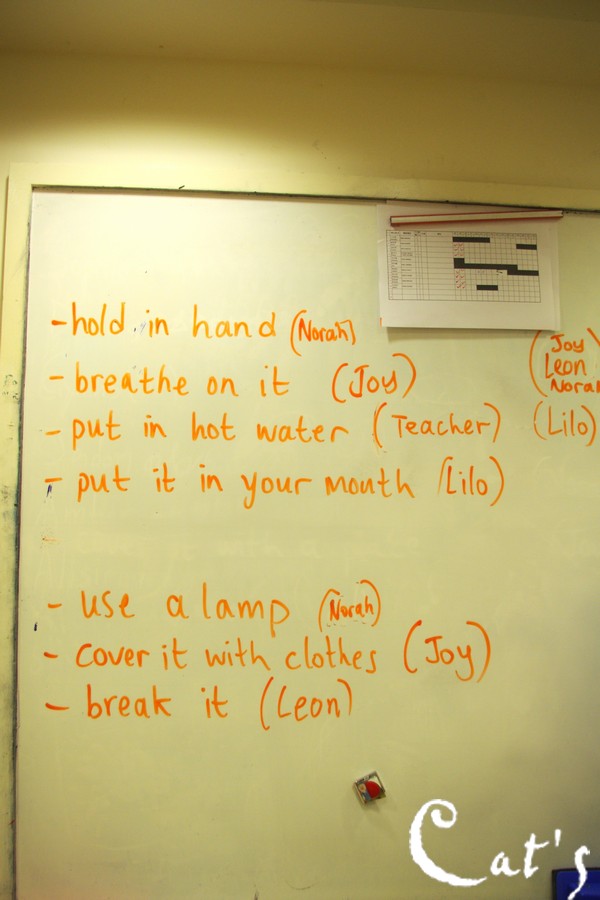 - hold in hand (Norah)
- breathe on it (Joy)
- put in hot water (Teacher)
- put it in your mouth (Lilo)
(Joy
Leon
Norah
(Lilo)
- use a lamp (Norah)
- cover it with clothes (Joy)
- break it (Leon)
Cat's